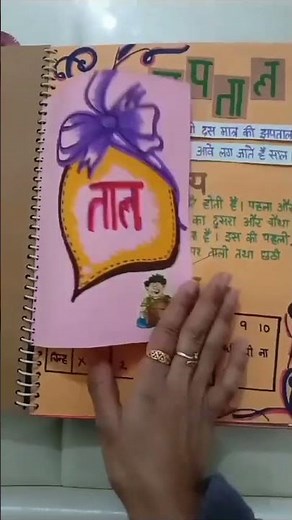 पताल
ताल
दस मात्र की झपताल
आवे लग जाते है साल
होती है। पहला और
का दूसरा और चौथा
है। इस की पहली,
पर ताली तथा छठी
9 10
ना
चिन्ह X 2